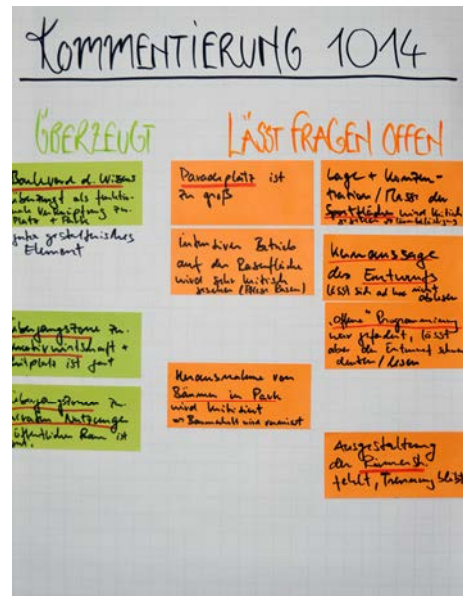 KOMMENTIERUNG 1014
ÜBERZEUGT
Boulevard d. Wissens
überzeugt als funktio-
nale Verknüpfung zw.
Platz + Park
gutes gestalterisches
Element
übergangszone zw.
kreativwirtschaft +
platz ist gut
übergangszonen zw.
privaten Nutzungen
öffentlichen Raum ist
gut.
LÄSST FRAGEN OFFEN
Paradeplatz ist
zu groß
intensiven Betrieb
auf der Rasenfläche
wird sehr kritisch
gesehen
Herausnahme von
Bäumen im Park
wird kritisiert
Lage + Konzen-
tration / Masse der
Sportflächen wird kritisch
gesehen
Kernaussage
des Entwurfs
lässt sich nicht
ablesen
"offene" Programmierung
war gefordert, lässt
aber den Entwurf schwer
deuten / lesen
Ausgestaltung
der Römerstr.
fehlt, Trennung bleibt